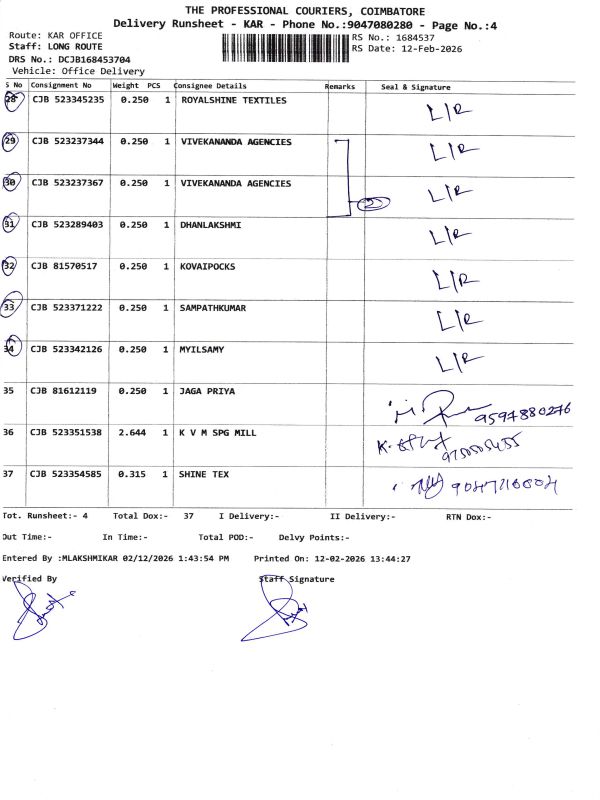 THE PROFESSIONAL COURIERS, COIMBATORE
Delivery Runsheet - KAR - Phone No.:9047080280 - Page No.:4
Route: KAR OFFICE
RS No.: 1684537
Staff: LONG ROUTE
RS Date: 12-Feb-2026
DRS No.: DCJB168453704
Vehicle: Office Delivery
S No Consignment No Weight PCS Consignee Details Remarks Seal & Signature
28 CJB 523345235 0.250 1 ROYALSHINE TEXTILES L/R
29 CJB 523237344 0.250 1 VIVEKANANDA AGENCIES L/R
30 CJB 523237367 0.250 1 VIVEKANANDA AGENCIES 2 L/R
31 CJB 523289403 0.250 1 DHANLAKSHMI L/R
32 CJB 81570517 0.250 1 KOVAIPOCKS L/R
33 CJB 523371222 0.250 1 SAMPATHKUMAR L/R
34 CJB 523342126 0.250 1 MYILSAMY L/R
35 CJB 81612119 0.250 1 JAGA PRIYA 9597880276
36 CJB 523351538 2.644 1 K V M SPG MILL
37 CJB 523354585 0.315 1 SHINE TEX
Tot. Runsheet:- 4 Total Dox:- 37 I Delivery:- II Delivery:- RTN Dox:-
Out Time:- In Time:- Total POD:- Delvy Points:-
Entered By :MLAKSHMIKAR 02/12/2026 1:43:54 PM Printed On: 12-02-2026 13:44:27
Verified By Staff Signature